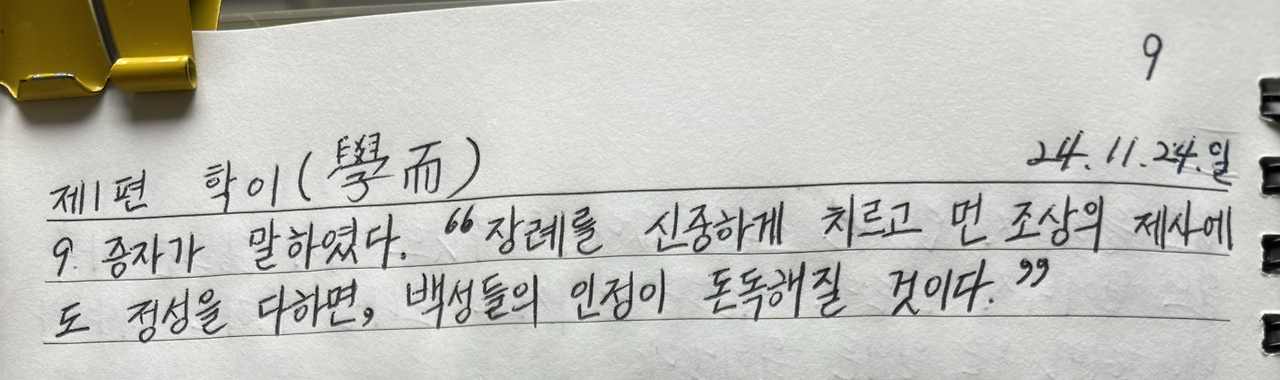 9
제1편 학이(學而) 24.11.24.일
9. 증자가 말하였다. “장례를 신중하게 치르고 먼 조상의 제사에
도 정성을 다하면, 백성들의 인정이 돈독해질 것이다.”